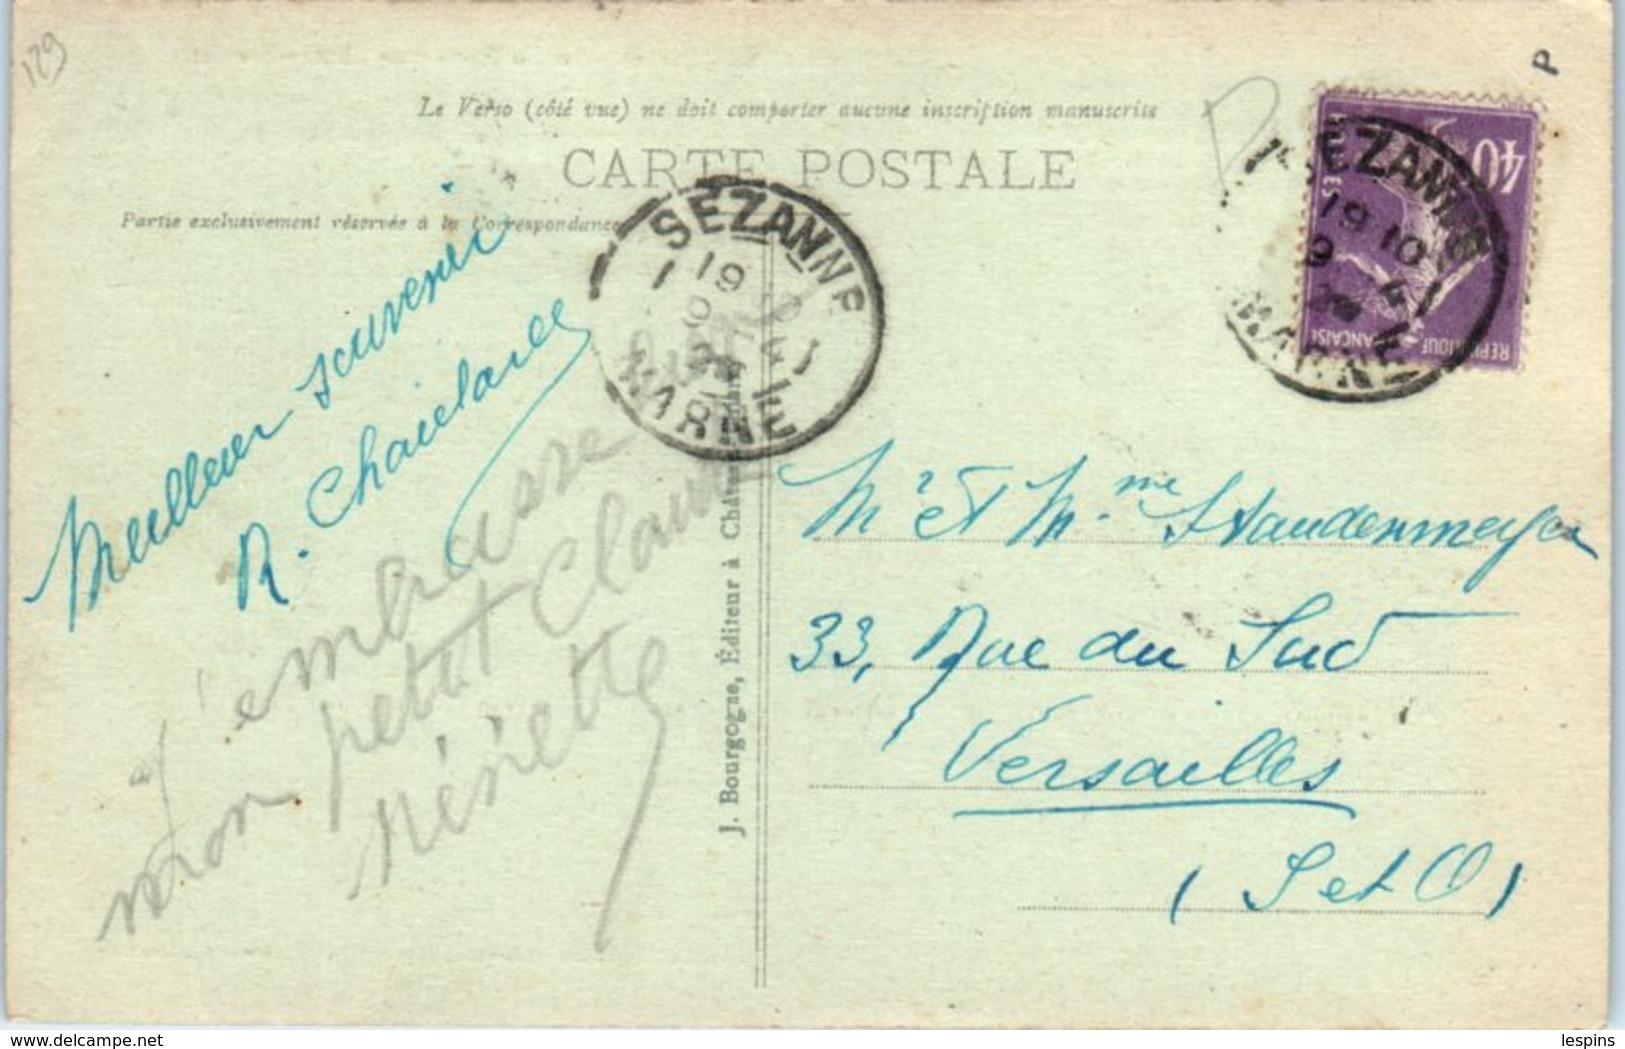 129
P
Le Verso (côté vue) ne doit comporter aucune inscription manuscrite
CARTE POSTALE
Partie exclusivement réservée à la Correspondance
SEZANNE
19
9
MARNE
SEZANNE
19 10
9 4
MARNE
40
REPUBLIQUE FRANÇAISE
POSTES
Meilleur souvenir
R.
J'embrasse
mon petit Claude
Nénette
J. Bourgogne, Éditeur à
Mr et Mme Staudenmayer
33, Rue du Sud
Versailles
(S et O)
delcampe.net
lespins